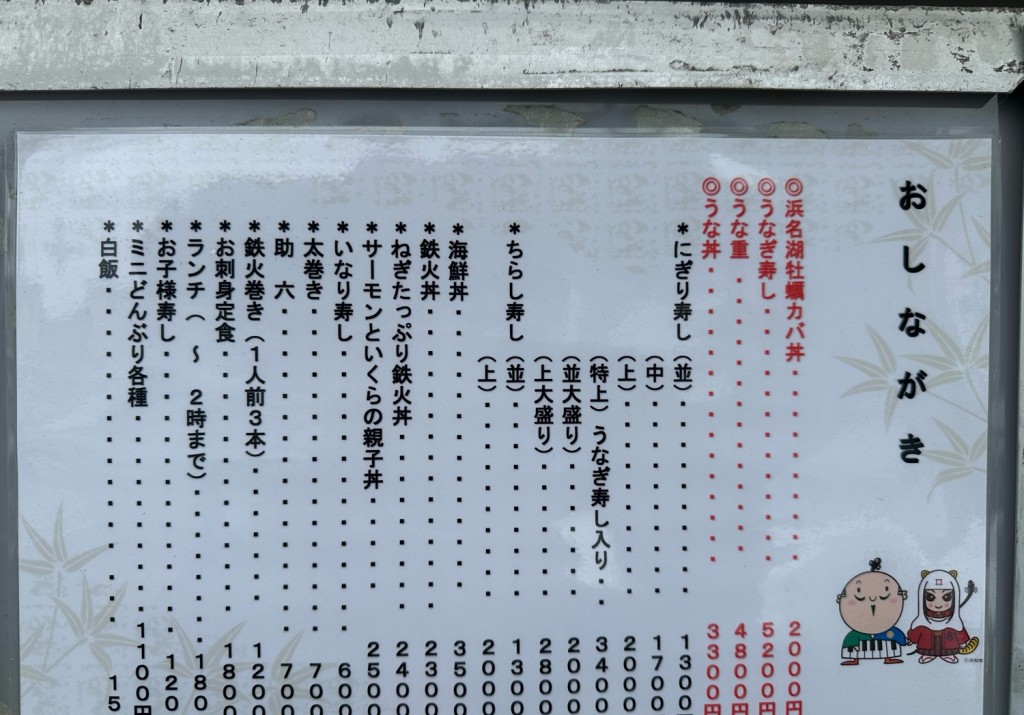 おしながき
◎浜名湖牡蠣カバ丼・・・・・・・・2000円
◎うなぎ寿し・・・・・・・・・・5200円
◎うな重・・・・・・・・・・・4800円
◎うな丼・・・・・・・・・・・3300円
*にぎり寿し(並)・・・・・・・・1300
(中)・・・・・・・・1700
(上)・・・・・・・・2000
(特上)うなぎ寿し入り・・3400
(並大盛り)・・・・・・2000
(上大盛り)・・・・・・2800
*ちらし寿し(並)・・・・・・・・1300
(上)・・・・・・・・2000
*海鮮丼・・・・・・・・・・・3500
*鉄火丼・・・・・・・・・・・2300
*ねぎたっぷり鉄火丼・・・・・・・2400
*サーモンといくらの親子丼・・・・2500
*いなり寿し・・・・・・・・・・600
*太巻き・・・・・・・・・・・700
*助 六・・・・・・・・・・・700
*鉄火巻き(1人前3本)・・・・・1200
*お刺身定食・・・・・・・・・・1800
*ランチ( ~ 2時まで)・・・・・180
*お子様寿し・・・・・・・・・・120
*ミニどんぶり各種・・・・・・・1100円
*白飯・・・・・・・・・・・・15